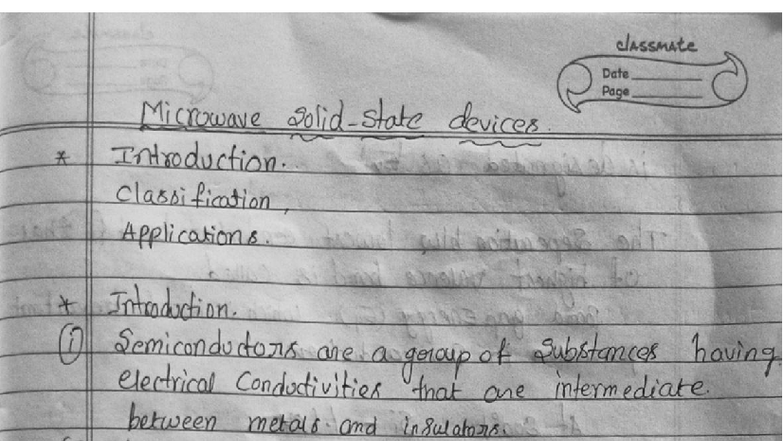 classmate
Date
Page
Microwave Solid-State devices.
* Introduction.
Classification,
Applications.
* Introduction.
(i) Semiconductors are a group of Substances having
electrical Conductivities that are intermediate.
between metals and insulators.